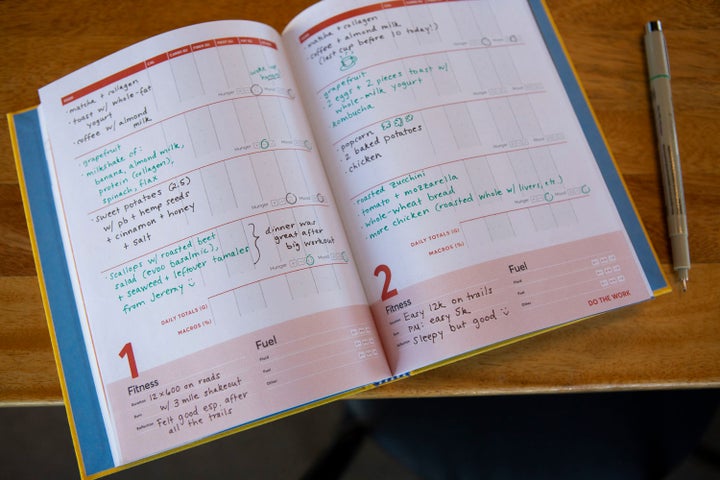 FOOD
CAL
CARBS (G)
FIBER (G)
PROT (G)
FAT (G)
wake up
· matcha + collagen
· toast w/ whole-fat
yogurt
· coffee w/ almond
milk
Hunger
Mood
grapefruit
· milkshake of:
banana, almond milk,
protein (collagen),
spinach, flax
Hunger
Mood
· sweet potatoes (2.5)
w/ pb + hemp seeds
+ cinnamon + honey
+ salt
Hunger
Mood
· scallops w/ roasted beet
salad (evoo basalmic),
+ seaweed + leftover tamales
from Jeremy
dinner was
great after
big workout
Hunger
Mood
DAILY TOTALS (G)
MACROS (%)
1
Fitness
Workout 12x600 on roads
w/ 3 mile shakeout
Reflection Felt good esp. after
all the trails
Fuel
Fluid
Fuel
Other
· matcha + collagen
· coffee + almond milk
(last cup before 10 today!)
Hunger
Mood
grapefruit
· 2 eggs + 2 pieces toast w/
whole-milk yogurt
kombucha
Hunger
Mood
· popcorn
· 2 baked potatoes
· chicken
Hunger
Mood
roasted zucchini
· tomato + mozzarella
· whole-wheat bread
· more chicken (roasted whole w/ livers, etc.)
Hunger
Mood
DAILY TOTALS (G)
MACROS (%)
2
Fitness
Workout Easy 12k on trails
PM: easy 5k
Reflection Sleepy but good
Fuel
Fluid
Fuel
Other
DO THE WORK